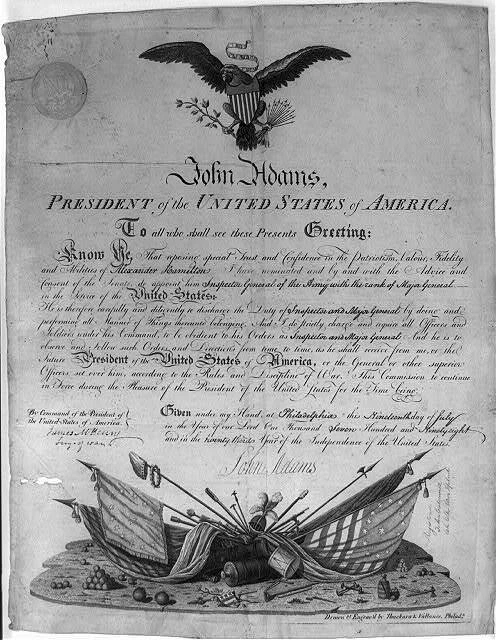 John Adams,
PRESIDENT of the UNITED STATES of AMERICA.
To all who shall see these Presents Greeting:
Know Ye, That reposing special Trust and Confidence in the Patriotism, Valour, Fidelity
and Abilities of Alexander Hamilton I have nominated and by and with the Advice and
Consent of the Senate do appoint him Inspector General of the Army with the rank of Major General
in the Service of the United States:
He is therefore carefully and diligently to discharge the Duty of Inspector and Major General by doing and
performing all Manner of Things thereunto belonging. And I do strictly charge and require all Officers and
Soldiers under his Command, to be obedient to his Orders as Inspector and Major General. And he is to
observe and follow such Orders, and Directions from time to time, as he shall receive from me, or the
future President of the United States of America, or the General or other superior
Officers set over him, according to the Rules and Discipline of War. This Commission to continue
in Force during the Pleasure of the President of the United States for the Time being.
Given under my Hand, at Philadelphia this Nineteenth day of July
in the Year of our Lord One Thousand Seven Hundred and Ninety eight
and in the twenty third Year of the Independence of the United States.
By Command of the President of
the United States of America.
James McHenry
Secy of War
John Adams
Drawn & Engrav'd by Thackara & Vallance, Philad.